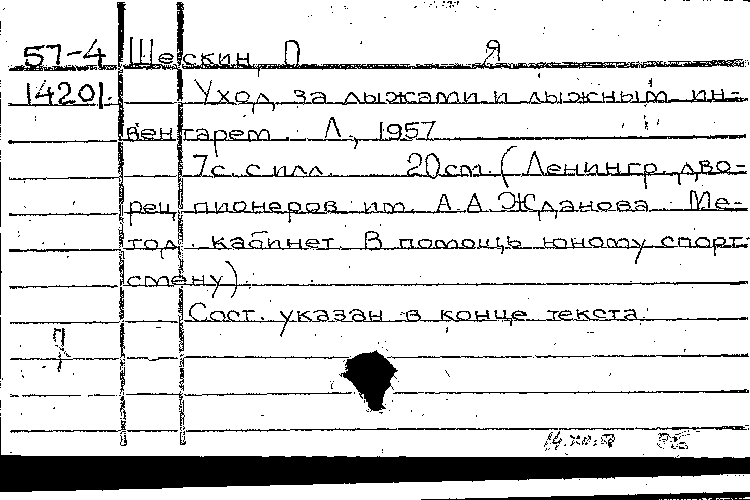 57-4 Шескин, П Я
14201. Уход за лыжами и лыжным ин-
вентарем. Л., 1957
7с. с илл. 20см. (Ленингр. дво-
рец пионеров им. А.А. Жданова. Ме-
тод. кабинет. В помощь юному спорт-
смену).
Сост. указан в конце текста.